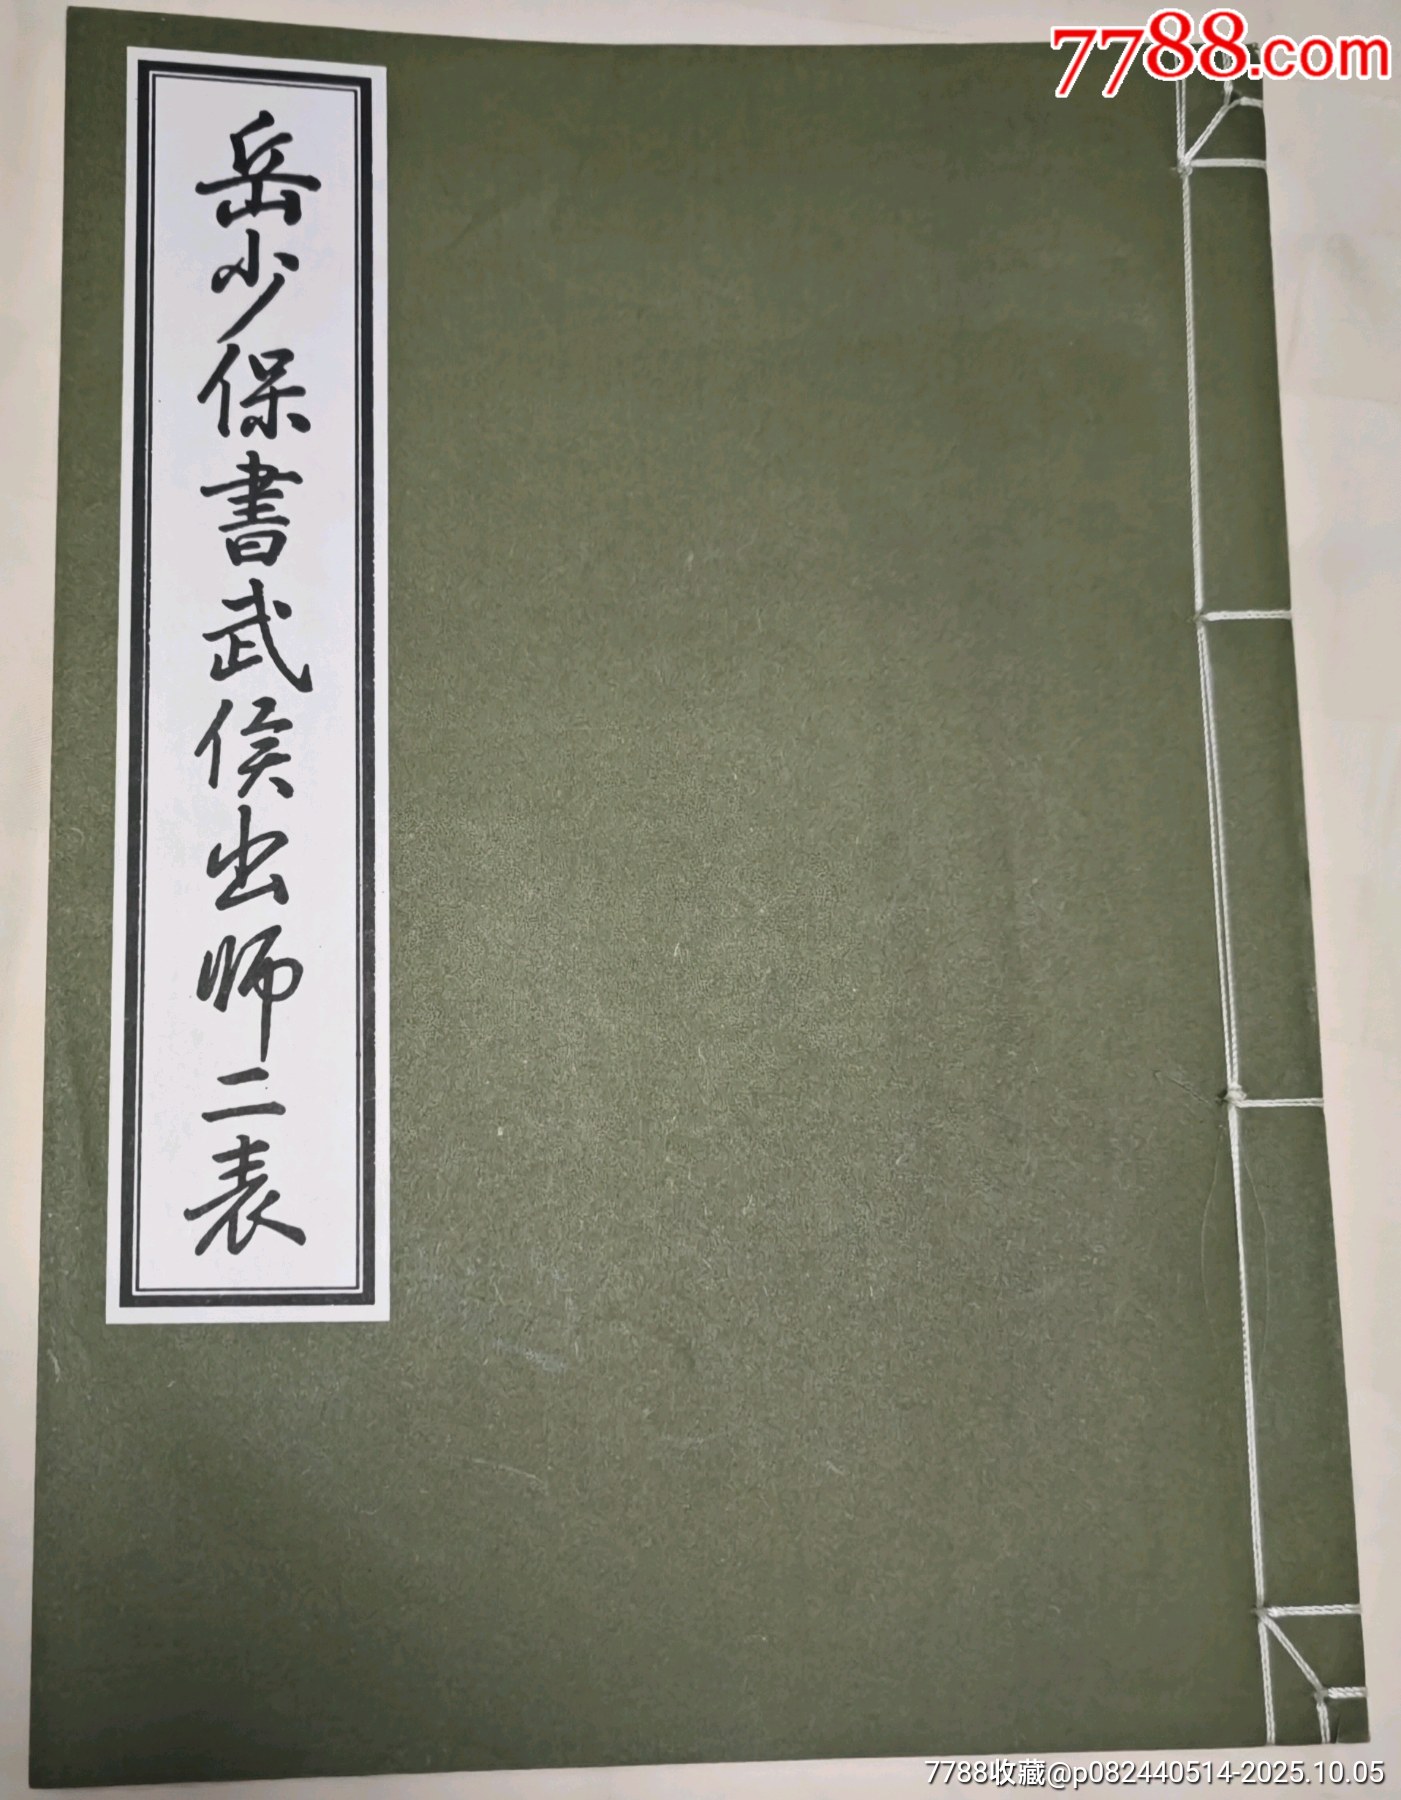 7788.com
岳少保書武侯出师二表
7788收藏@p082440514-2025.10.05